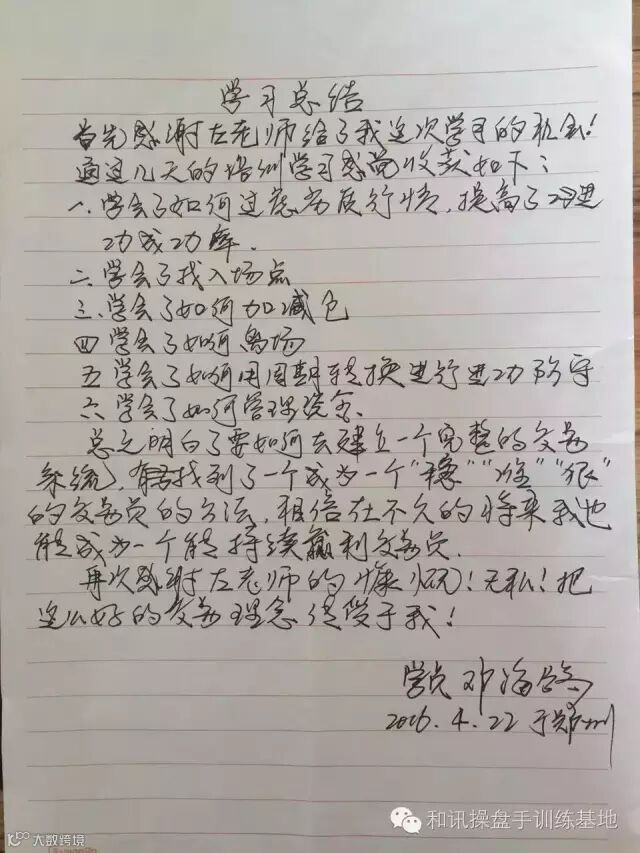 学习总结
首先感谢左老师给了我这次学习的机会!
通过几天的培训学习感觉收获如下:
一.学会了如何过滤劣质行情,提高了
功成功率.
二学会了找入场点
三.学会了如何加减仓
四学会了如何离场
五学会了如何用周期转换进行进功防守
六学会了如何管理资金.
总之明白了要如何去建立一个完整的交易
系统,找到了一个成为一个“稳”“准”“狠”
的交易员的方法,相信在不久的将来我也
能成为一个能持续赢利交易员.
再次感谢左老师的慷慨!无私!把
这么好的交易理念传授于我!
学员 邓海
2016.4.22于郑州
和讯操盘手训练基地
大数跨境